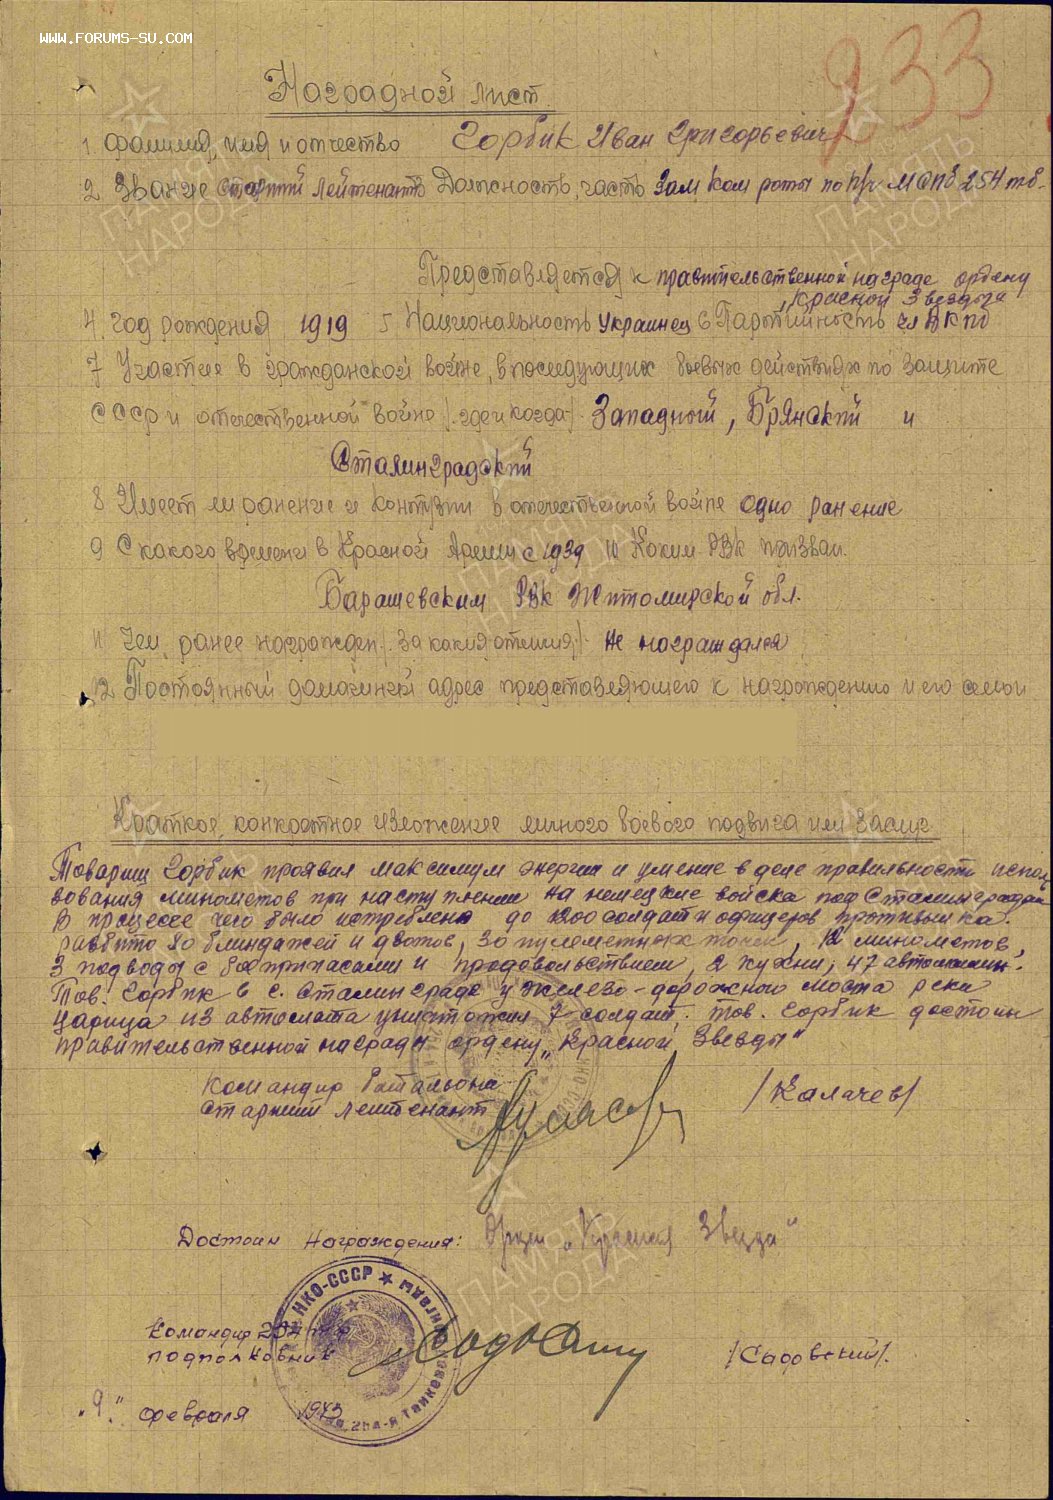 www.forums-su.com
233
Наградной лист
1. Фамилия, имя и отчество Горбик Иван Григорьевич
2 Звание Старший Лейтенант Должность, часть Зам Ком роты по п/ч МСПБ 254 тб.
Представляется к правительственной награде ордену
"Красной Звезды"
4. год рождения 1919 5 Национальность Украинец 6 Партийность чл ВКПб
7 Участие в гражданской войне, в последующих боевых действиях по защите
СССР и отечественной войне /где и когда/. Западный, Брянский и
Сталинградский
8 Имеет ли ранение и контузии в отечественной войне одно ранение
9 С какого времени в Красной Армии с 1939 10 Каким РВК призван.
Барашевским РВК Житомирской обл.
11 Чем ранее награжден /за какия отлития/. Не награждался
12 Постоянный домашний адрес представляющего к награждению и его семьи
Краткое, конкретное изложение личного боевого подвига или заслуг
Товарищ Горбик проявил максимум энергии и умение в деле правильности исполь
вования минометов при наступлении на немецкие войска под Сталинградом
В процессе чего было истреблено до 1200 солдат и офицеров противника.
разбито 80 блиндажей и дзотов, 30 пулеметных точек, 12 минометов,
3 подводы с боеприпасами и продовольствием, 2 кухни, 47 автомашин.
Тов. Горбик в г. Сталинграде у железо-дорожного моста реки
Царица из автомата уничтожил 7 солдат. тов. Горбик достоин
правительственной награды ордену "Красной Звезды"
Командир батальона
старший лейтенант /Калачев/
Достоин награждения: Орден "Красная Звезда"
Командир 254 тбр
подполковник /Садовский/.
"9." февраля 1943
НКО-СССР
ПАМЯТЬ НАРОДА